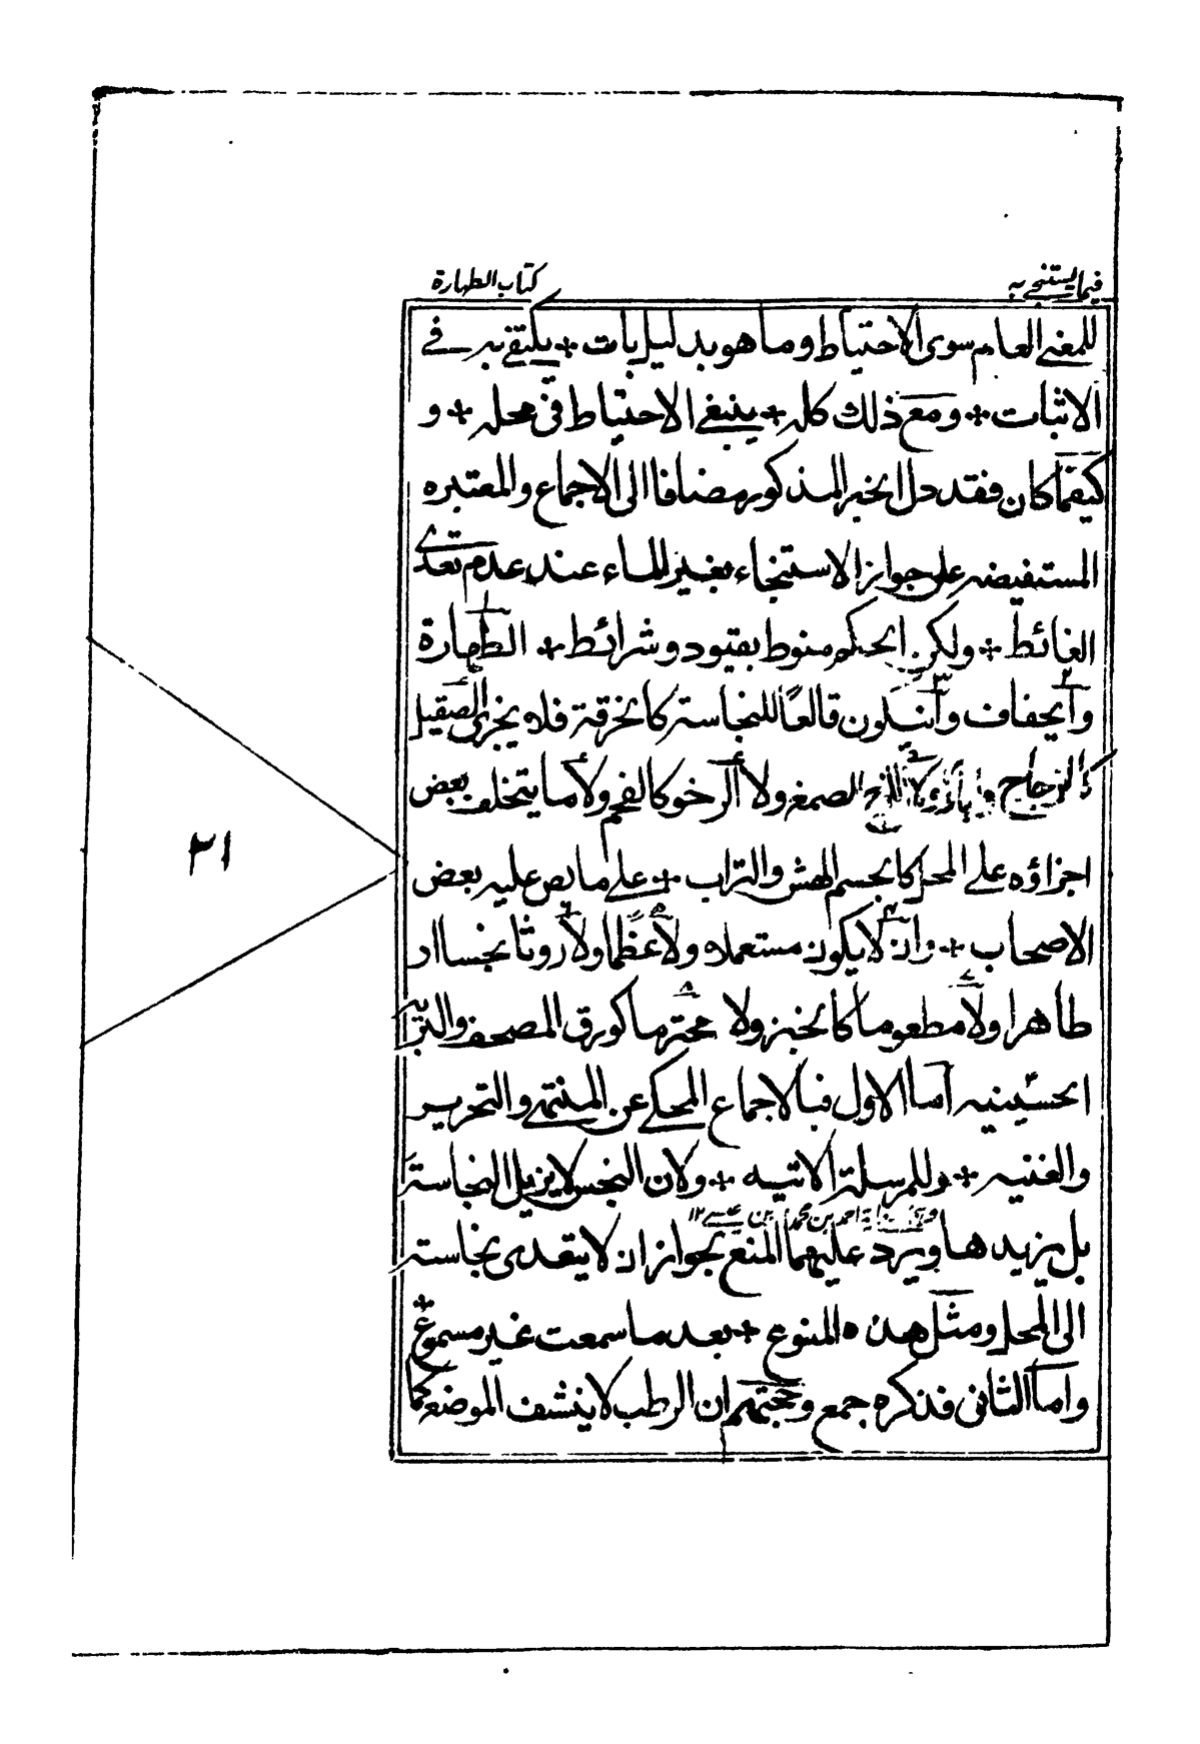 فيما يستنجے به
كتاب الطهارة
للمعنے العام سوى الاحتياط وما هو بدليل بات + يكتفے به فے
الاثبات + ومع ذلك كله + ينبغے الاحتياط فى محله + و
كيفما كان فقد دل الخبر المذكور مضافا الى الاجماع والمعتبره
المستفيضه على جواز الاستنجاء بغير الماء عند عدم تعدى
الغائط + ولكن الحكم منوط بقيود وشرائط + الطهارة
والجفاف وان يكون قالعًا للنجاسة كالخرقة فلا يجزى الصقيل
كالزجاج و اللزج الصمغ ولا الرخو كالفحم ولا ما يتخلف بعض
اجزاؤه على المحل كالجسم الهش والتراب + علے ما نص عليه بعض
الاصحاب + وان لا يكون مستعملا ولا عظما ولا روثا نجسا او
طاهرا ولا مطعوما كالخبز ولا محترما كورق المصحف والتربه
الحسينيه اما الاول فبالاجماع المحكے عن المنتهے والتحرير
والغنيه + وللمرسلة الاتيه + ولان النجس لا يزيل النجاسة
احمد بن محمد بن عيسے ١٢
بل يزيدها ويرد عليهما المنع بجواز ان لا يتعدى نجاسته
الى المحل ومثل هذه المنوع + بعد ما سمعت غير مسموع +
واما الثانى فذكره جمع وحجتهم ان الرطب لا ينشف الموضع كما
٢١